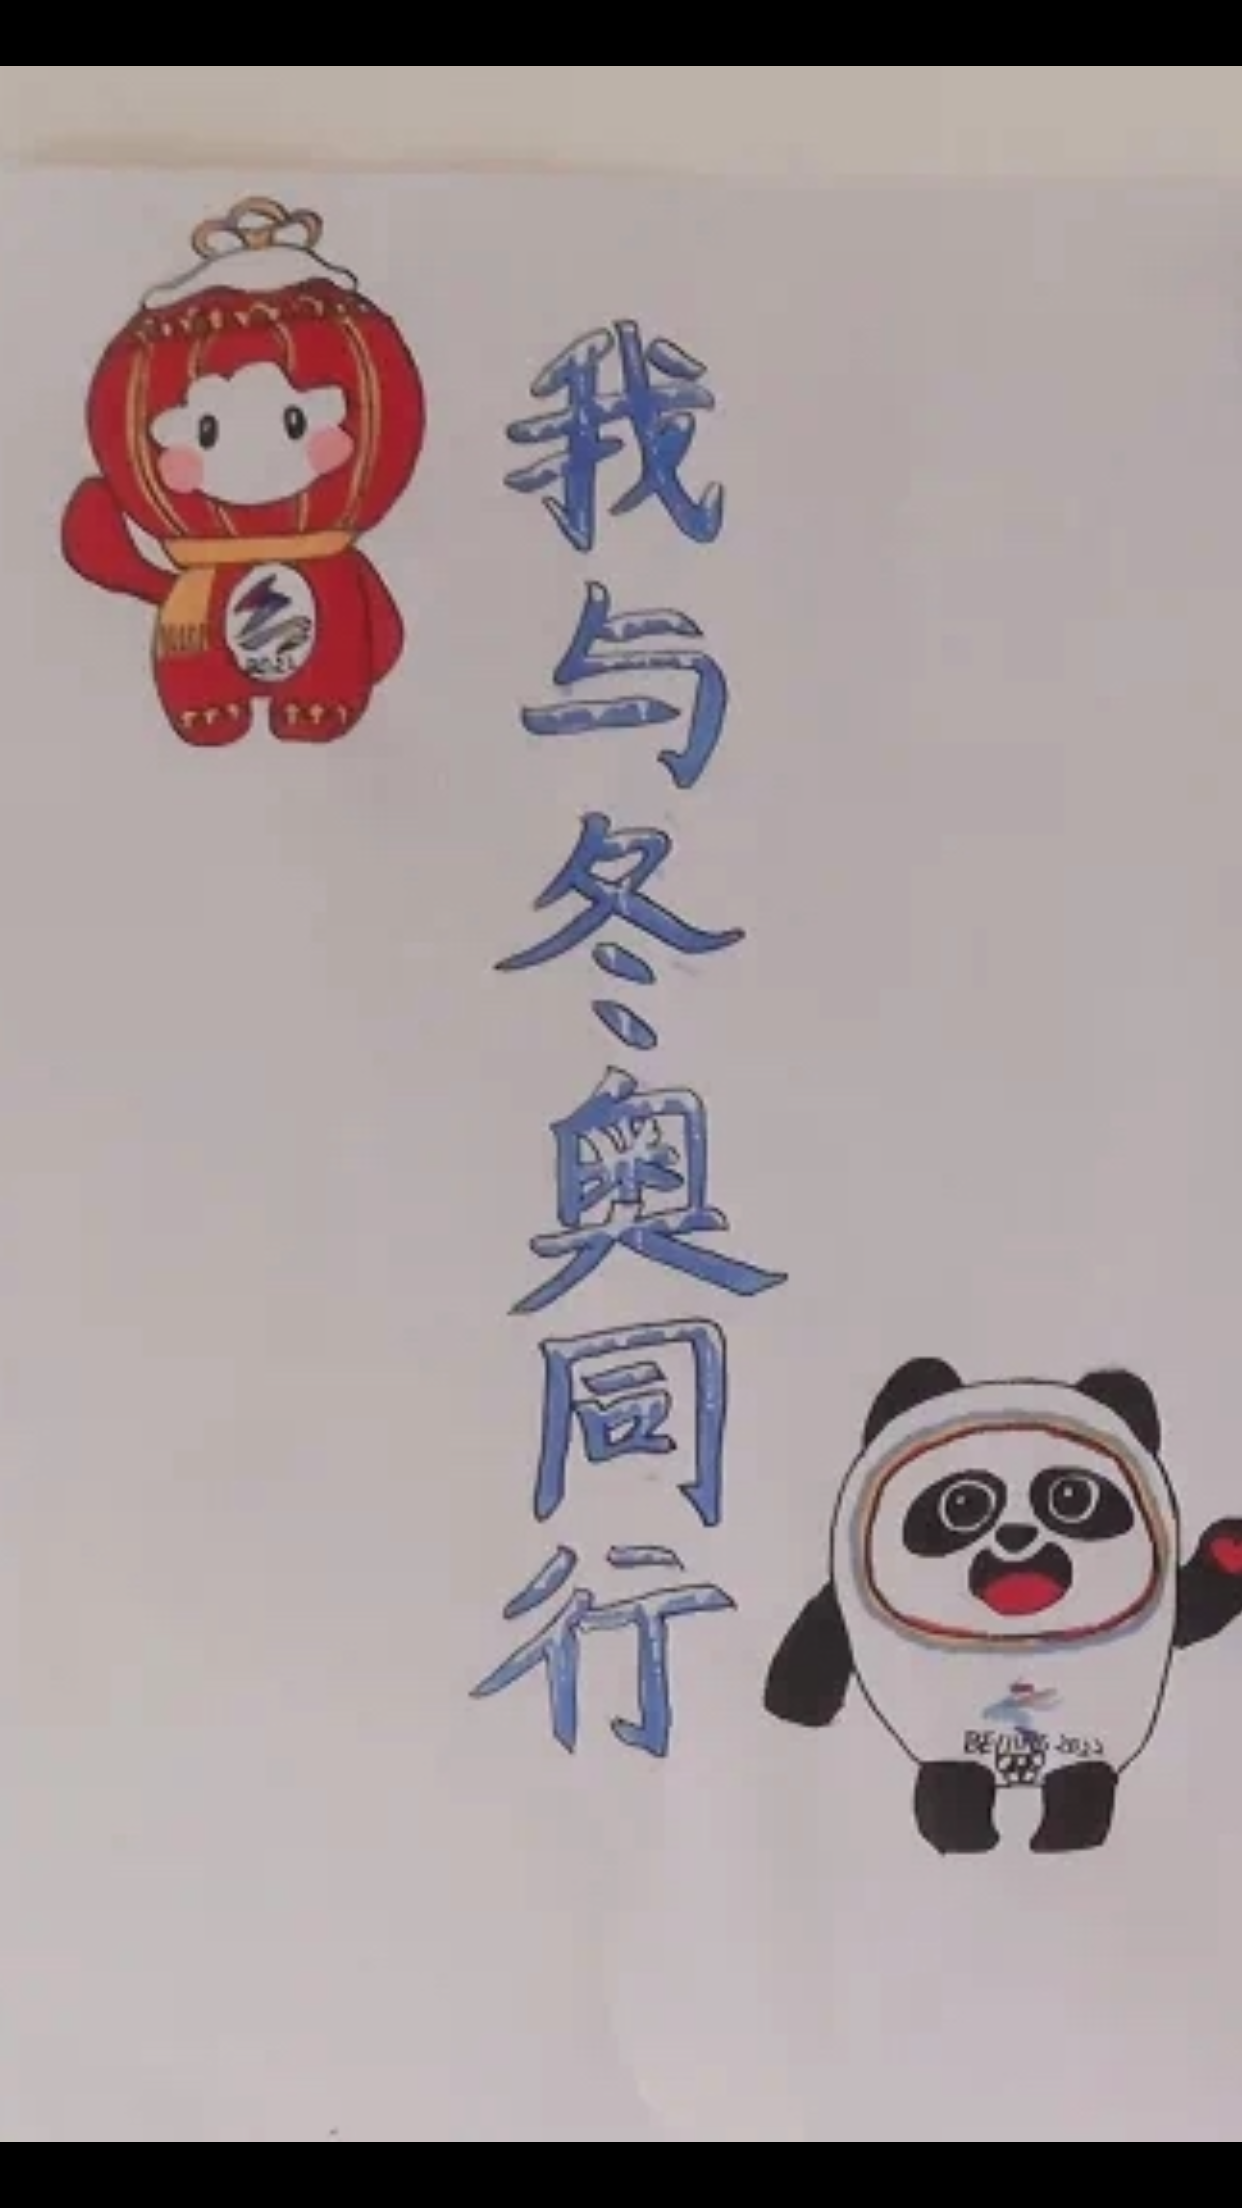 我与冬奥同行
BEIJING 2022